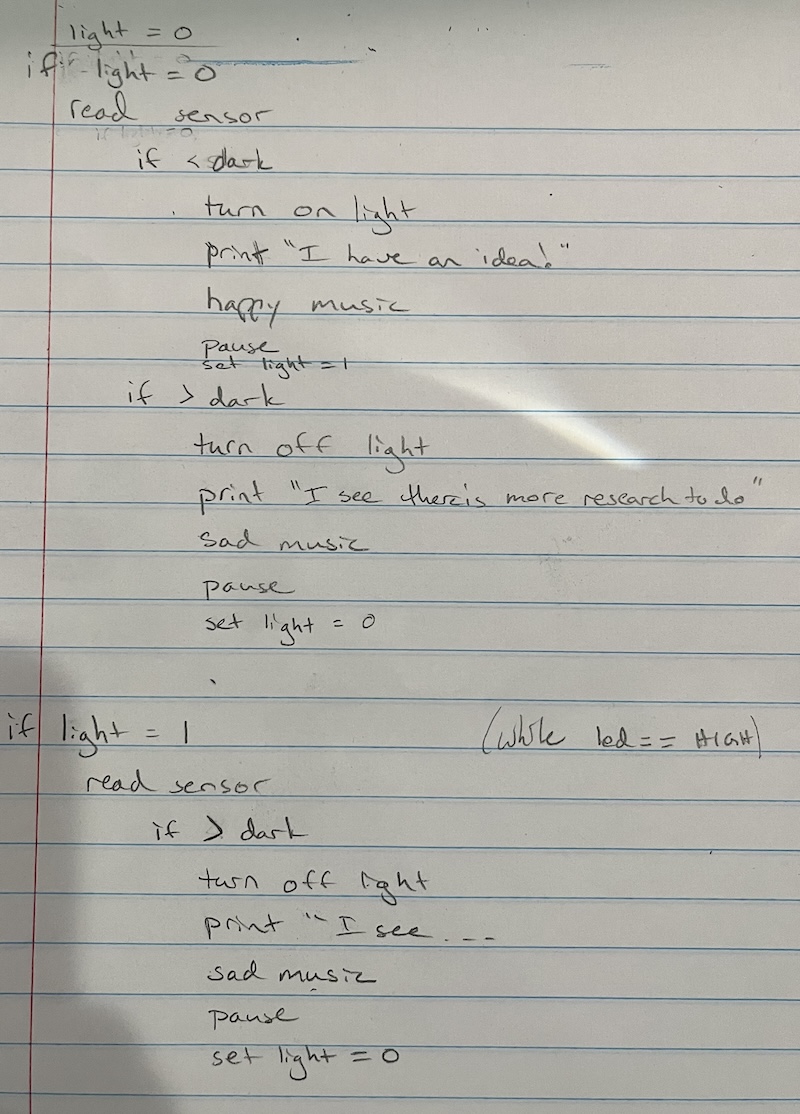 light = 0
if light = 0
read sensor
if light = 0
if < dark
turn on light
print "I have an idea!"
happy music
pause
set light = 1
if > dark
turn off light
print "I see there is more research to do"
sad music
pause
set light = 0
if light = 1 (while led == HIGH)
read sensor
if > dark
turn off light
print "I see ---
sad music
pause
set light = 0